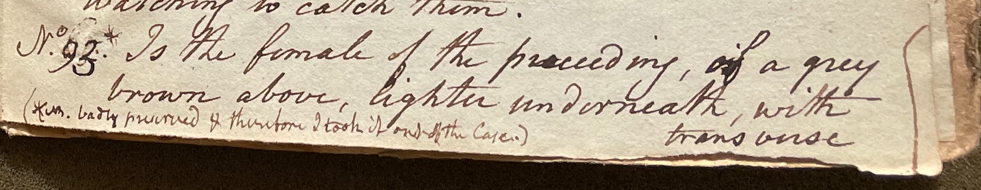 watching to catch them.
No. 93.* Is the female of the preceeding, of a grey
brown above, lighter underneath, with
(* badly preserved & therefore I took it out of the Case.)
transverse